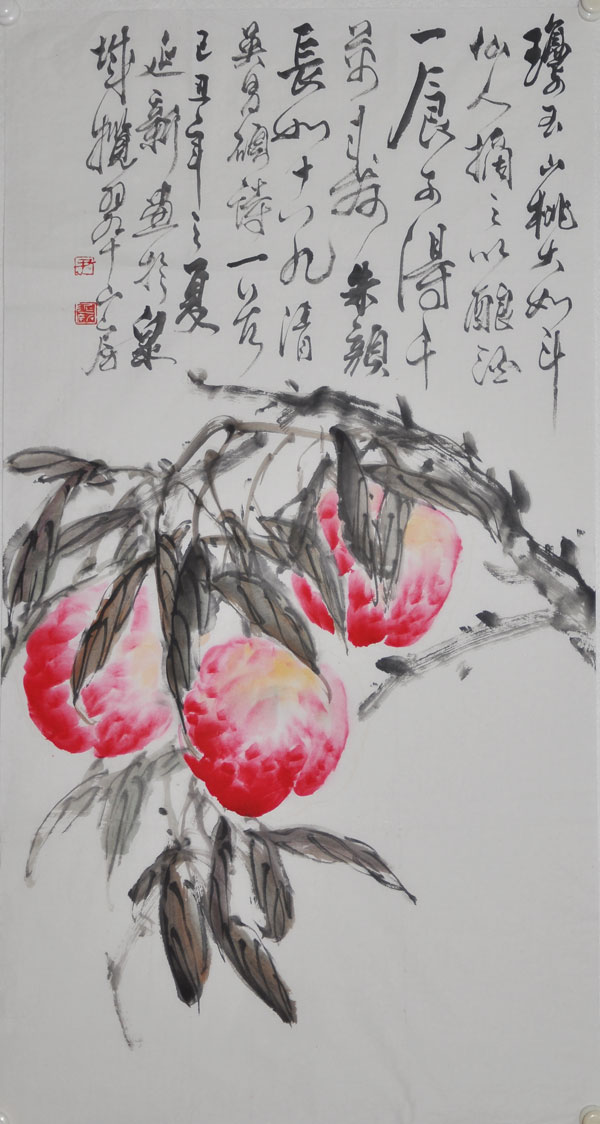 瓊玉山桃大如斗
仙人摘之以釀酒
一食可得千
萬壽朱顏
長如十八九清
吴昌碩詩一首
己丑年之夏
延新畫於泉
城攬翠山居